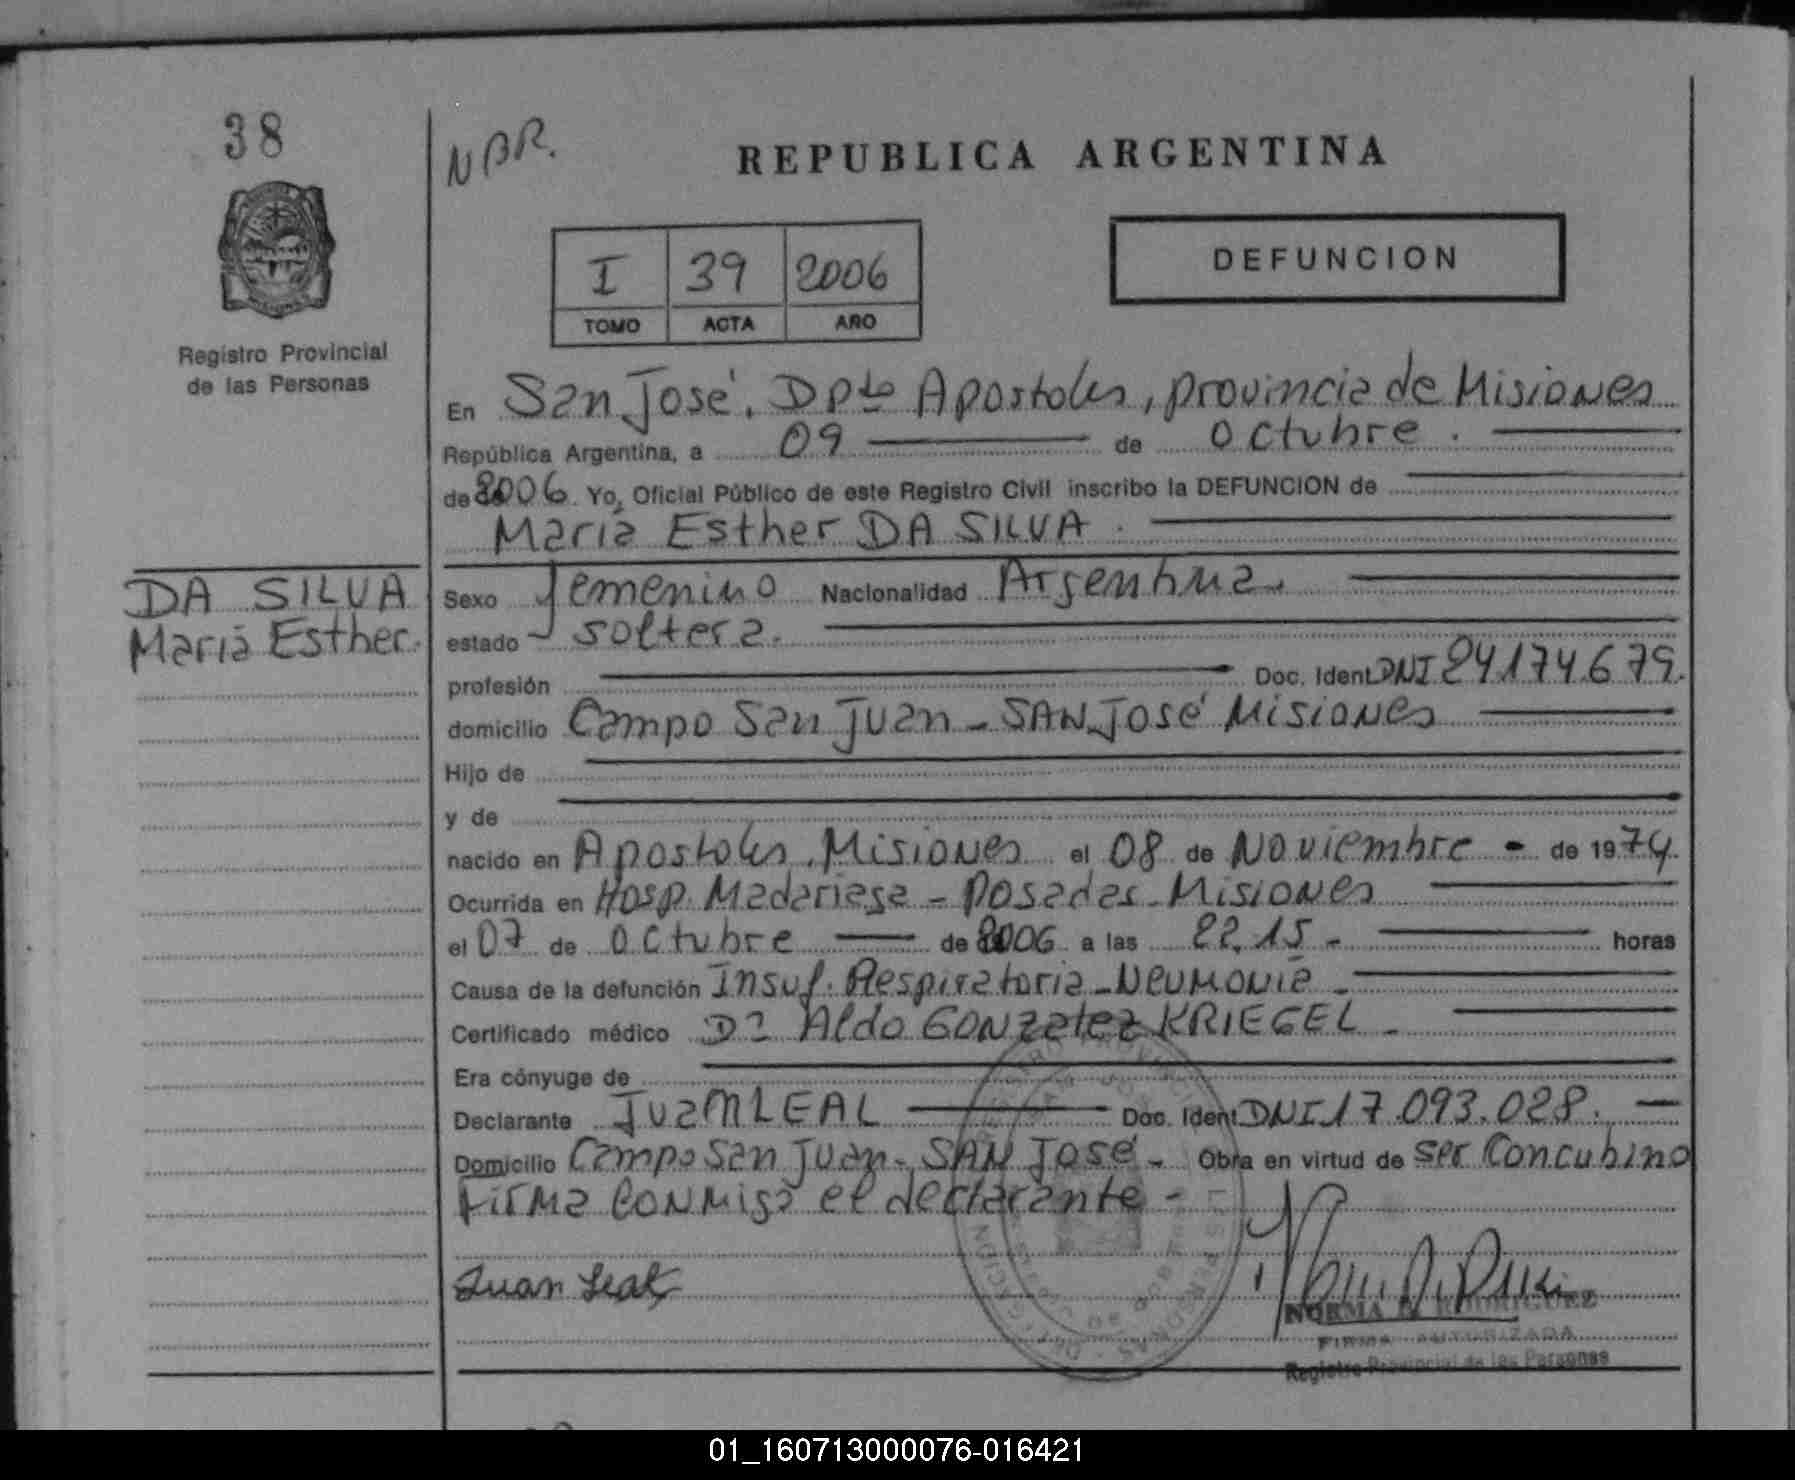 38
NBR.
REPUBLICA ARGENTINA
I 39 2006
TOMO ACTA AÑO
DEFUNCION
Registro Provincial
de las Personas
En San José, Dpto Apostoles, provincia de Misiones
República Argentina, a 09 de octubre.
de 2006. Yo, Oficial Público de este Registro Civil inscribo la DEFUNCION de
María Esther DA SILVA.
DA SILVA
María Esther.
Sexo femenino Nacionalidad Argentina.
estado soltera.
profesión Doc. Ident. DNI 24174.679.
domicilio Campo San Juan - SAN José Misiones
Hijo de
y de
nacido en Apostoles, Misiones el 08 de Noviembre - de 1974.
Ocurrida en Hosp. Madariaga - Posadas - Misiones
el 07 de octubre de 2006 a las 22,15 - horas
Causa de la defunción Insuf. Respiratoria - Neumonía -
Certificado médico Dr Aldo GONzalez KRIEGEL -
Era cónyuge de
Declarante Juan LEAL Doc. Ident. DNI 17.093.028.
Domicilio Campo San Juan - SAN José - Obra en virtud de ser Concubino
firma conmigo el declarante -
Juan Leal
NORMA B. RODRIGUEZ
FIRMA AUTORIZADA
Registro Provincial de las Personas
01_160713000076-016421